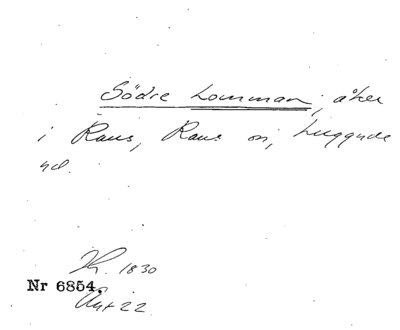 Södre Lomman, åker
i Raus, Raus sn, Luggude
hd.
1830
Nr 6854.
22